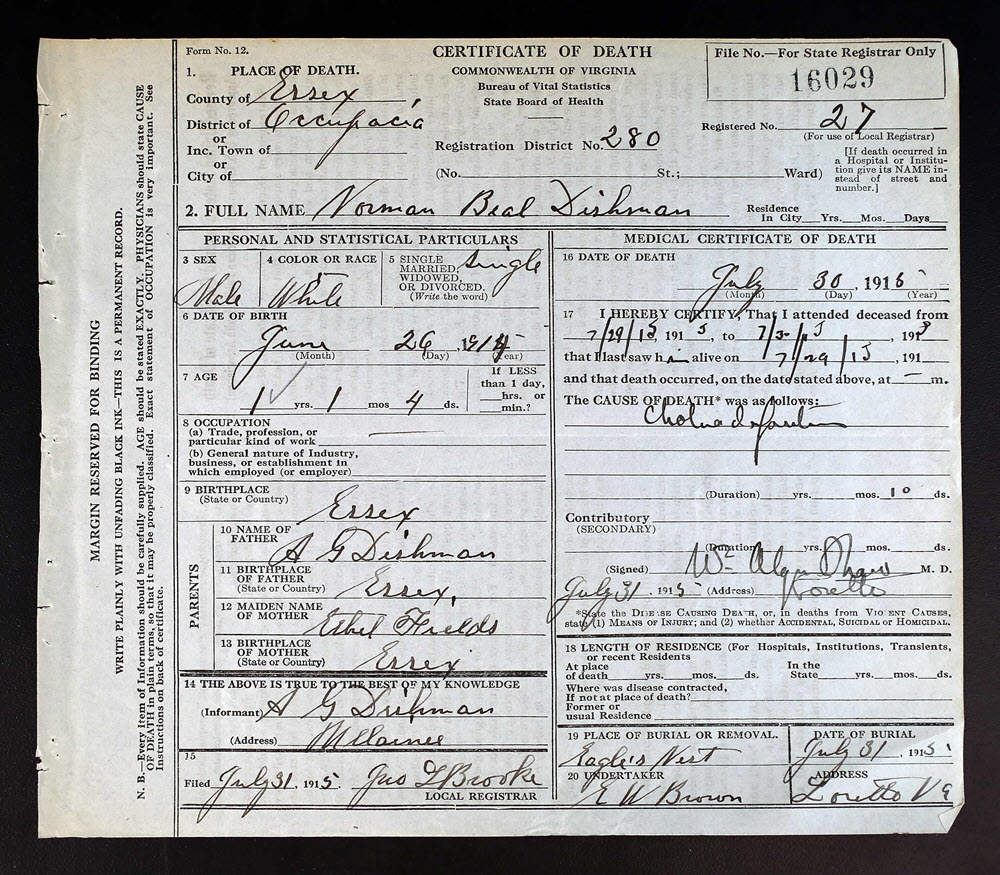 Form No. 12.
CERTIFICATE OF DEATH
COMMONWEALTH OF VIRGINIA
Bureau of Vital Statistics
State Board of Health
File No.—For State Registrar Only
16029
1. PLACE OF DEATH.
County of Essex
District of Occupacia
or
Inc. Town of
or
City of
Registration District No. 280
(No. St.; Ward)
Registered No. 27
(For use of Local Registrar)
[If death occurred in
a Hospital or Institu-
tion give its NAME in-
stead of street and
number.]
2. FULL NAME Norman Beal Dishman
Residence
In City Yrs. Mos. Days
PERSONAL AND STATISTICAL PARTICULARS
3 SEX
Male
4 COLOR OR RACE
White
5 SINGLE
MARRIED,
WIDOWED,
OR DIVORCED.
(Write the word)
Single
6 DATE OF BIRTH
June 26, 1914
(Month) (Day) (Year)
7 AGE
1 yrs. 1 mos 4 ds.
If LESS
than 1 day,
hrs. or
min.?
8 OCCUPATION
(a) Trade, profession, or
particular kind of work
(b) General nature of Industry,
business, or establishment in
which employed (or employer)
9 BIRTHPLACE
(State or Country)
Essex
PARENTS
10 NAME OF
FATHER
A G Dishman
11 BIRTHPLACE
OF FATHER
(State or Country)
Essex,
12 MAIDEN NAME
OF MOTHER
Ethel Fields
13 BIRTHPLACE
OF MOTHER
(State or Country)
Essex
14 THE ABOVE IS TRUE TO THE BEST OF MY KNOWLEDGE
(Informant) A G Dishman
(Address)
15
Filed July 31, 1915. Jno F Brooke
LOCAL REGISTRAR
MEDICAL CERTIFICATE OF DEATH
16 DATE OF DEATH
July 30, 1915
(Month) (Day) (Year)
17 I HEREBY CERTIFY, That I attended deceased from
7/29/15, 1915, to 7/3 , 191
that I last saw h alive on 7/29/15, 191
and that death occurred, on the date stated above, at — m.
The CAUSE OF DEATH* was as follows:
(Duration) yrs. mos. 10 ds.
Contributory
(SECONDARY)
(Duration) yrs. mos. ds.
(Signed) Wm M. D.
July 31, 1915 (Address) Loretto
*State the DISEASE CAUSING DEATH, or, in deaths from VIOLENT CAUSES,
state (1) MEANS OF INJURY; and (2) whether ACCIDENTAL, SUICIDAL or HOMICIDAL.
18 LENGTH OF RESIDENCE (For Hospitals, Institutions, Transients,
or recent Residents
At place
of death yrs. mos. ds.
In the
State yrs. mos. ds.
Where was disease contracted,
If not at place of death?
Former or
usual Residence
19 PLACE OF BURIAL OR REMOVAL.
Eagle's Nest
DATE OF BURIAL
July 31, 1915.
20 UNDERTAKER
E W Brown
ADDRESS
Loretto Va
MARGIN RESERVED FOR BINDING
WRITE PLAINLY WITH UNFADING BLACK INK—THIS IS A PERMANENT RECORD.
N. B.—Every item of Information should be carefully supplied. AGE should be stated EXACTLY. PHYSICIANS should state CAUSE
OF DEATH in plain terms, so that it may be properly classified. Exact statement of OCCUPATION is very important. See
Instructions on back of certificate.